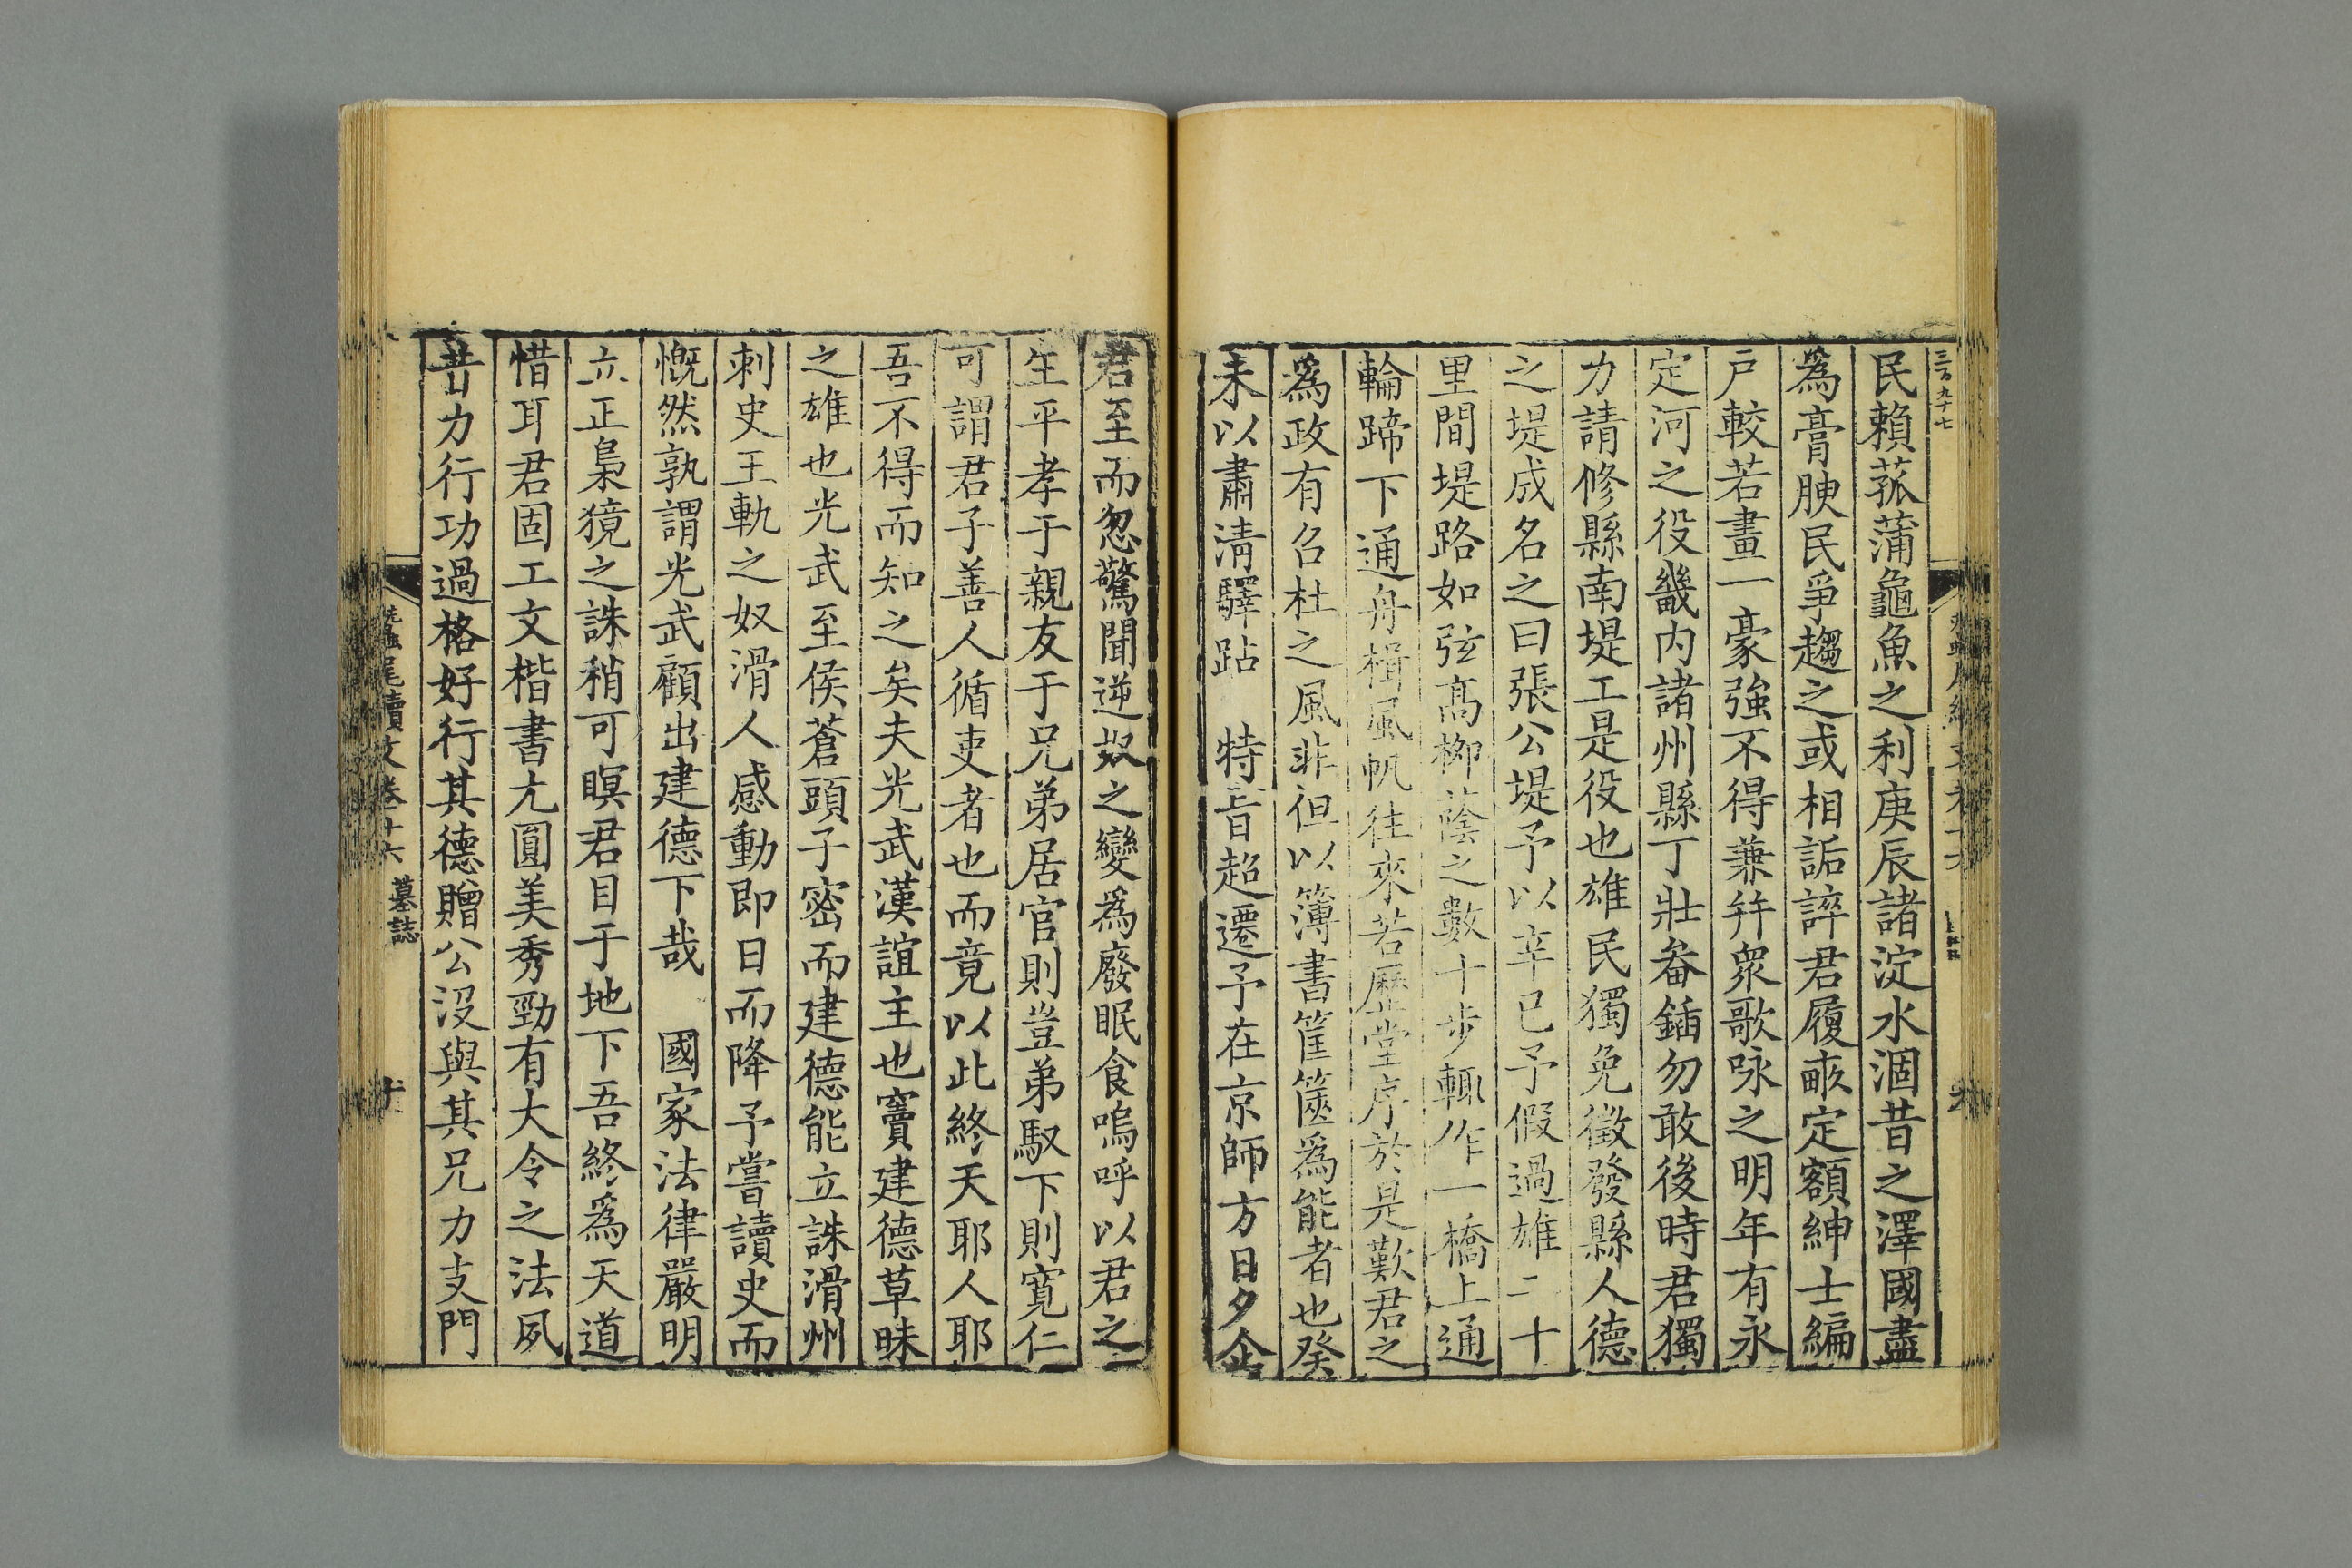 三百九十七
民賴菰蒲龜魚之利庚辰諸淀水涸昔之澤國盡
為膏腴民爭趨之或相詬誶君履畞定額紳士編
戸較若畫一豪強不得兼并衆歌咏之明年有永
定河之役畿内諸州縣丁壯畚鍤勿敢後時君獨
力請修縣南堤工是役也雄民獨免徵發縣人德
之堤成名之曰張公堤予以辛巳予假過雄二十
里間堤路如弦髙栁蔭之數十步輒作一橋上通
輪蹄下通舟楫風帆往來若歴堂序於是歎君之
為政有召杜之風非但以簿書筐篋為能者也癸
未以肅淸驛跕　特旨超遷予在京師方日夕企
君至而忽驚聞逆奴之變為廢眠食嗚呼以君之
生平孝于親友于兄弟居官則豈弟馭下則寛仁
可謂君子善人循吏者也而竟以此終天耶人耶
吾不得而知之矣夫光武漢誼主也竇建德草昧
之雄也光武至侯蒼頭子密而建德能立誅滑州
刺史王軌之奴滑人感動即日而降予嘗讀史而
慨然孰謂光武顧出建德下哉　國家法律嚴明
立正梟獍之誅稍可瞑君目于地下吾終為天道
惜耳君固工文楷書尤圓美秀勁有大令之法夙
昔力行功過格好行其德贈公沒與其兄力支門
蠶尾續文卷十六　墓誌　十